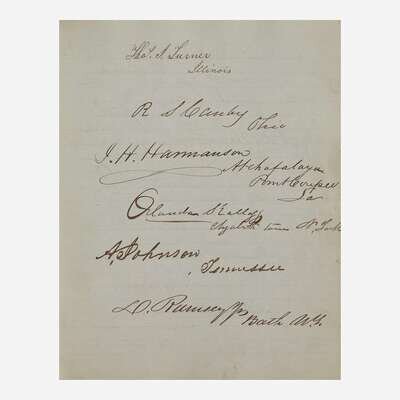 Tho. J. Turner
Illinois
R S Canby
Ohio
J. H. Harmanson
Atchafalaya
Point Coupee
La
Orlando Kellogg
Elizabeth Town N. York
A, Johnson,
Tennessee
D. Rumsey Jr
Bath NY.